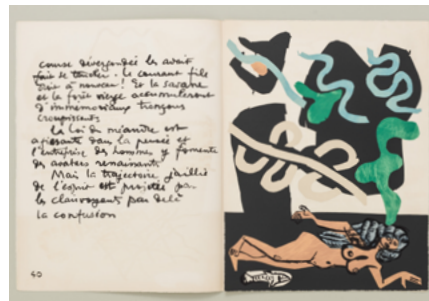 course dévergondée les avait
fait se toucher. le courant file
droit à nouveau! Et la savane
et la forêt vierge accumuleront
d'immémoriaux tronçons
croupissants
La loi du méandre est
agissante dans la pensée et
l'entreprise des hommes y fomente
des avatars renaissants
Mais la trajectoire jaillie
de l'esprit est projetée par
les clairvoyants par delà
la confusion
40